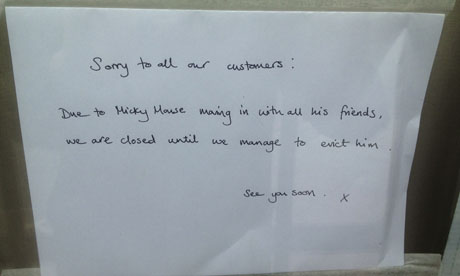 Sorry to all our customers:
Due to Micky Mouse moving in with all his friends,
we are closed until we manage to evict him.
See you soon. X